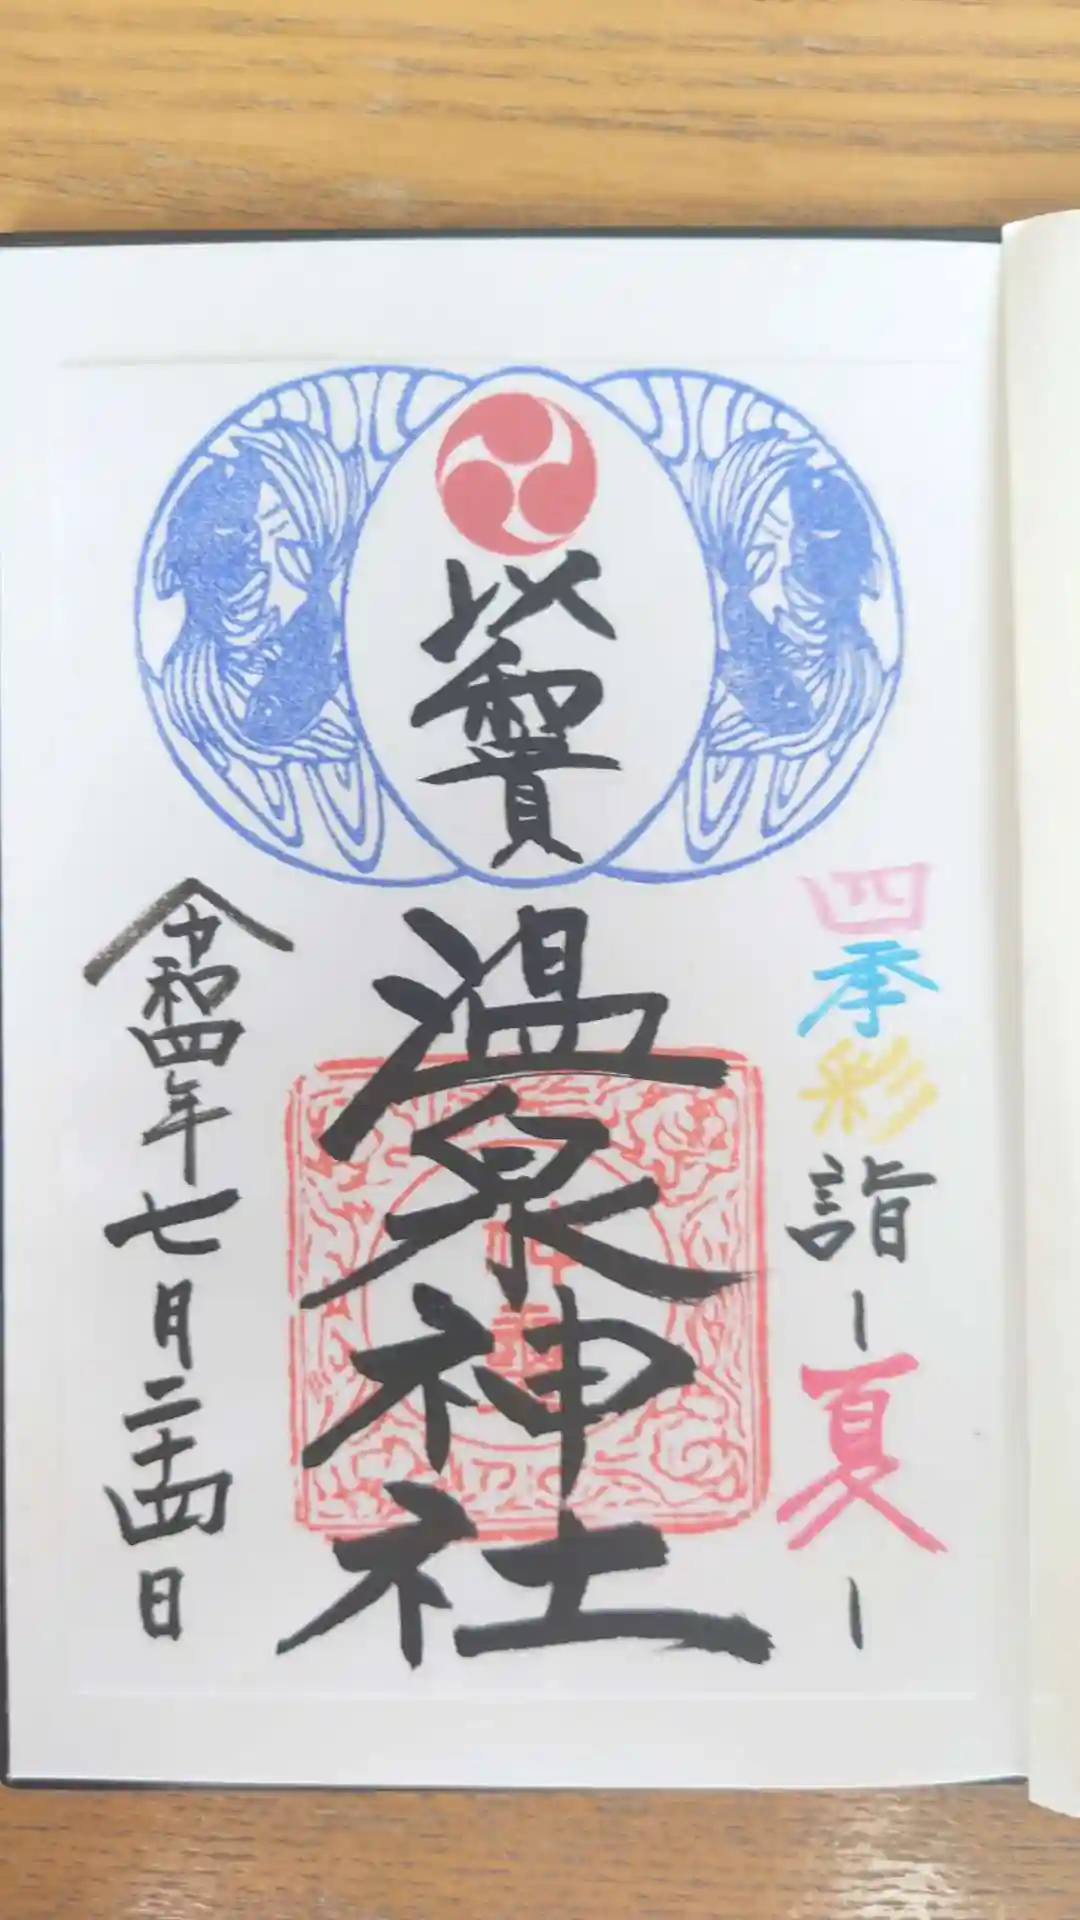 四季彩詣
ー夏ー
以和貴
温泉神社
令和四年七月二十四日